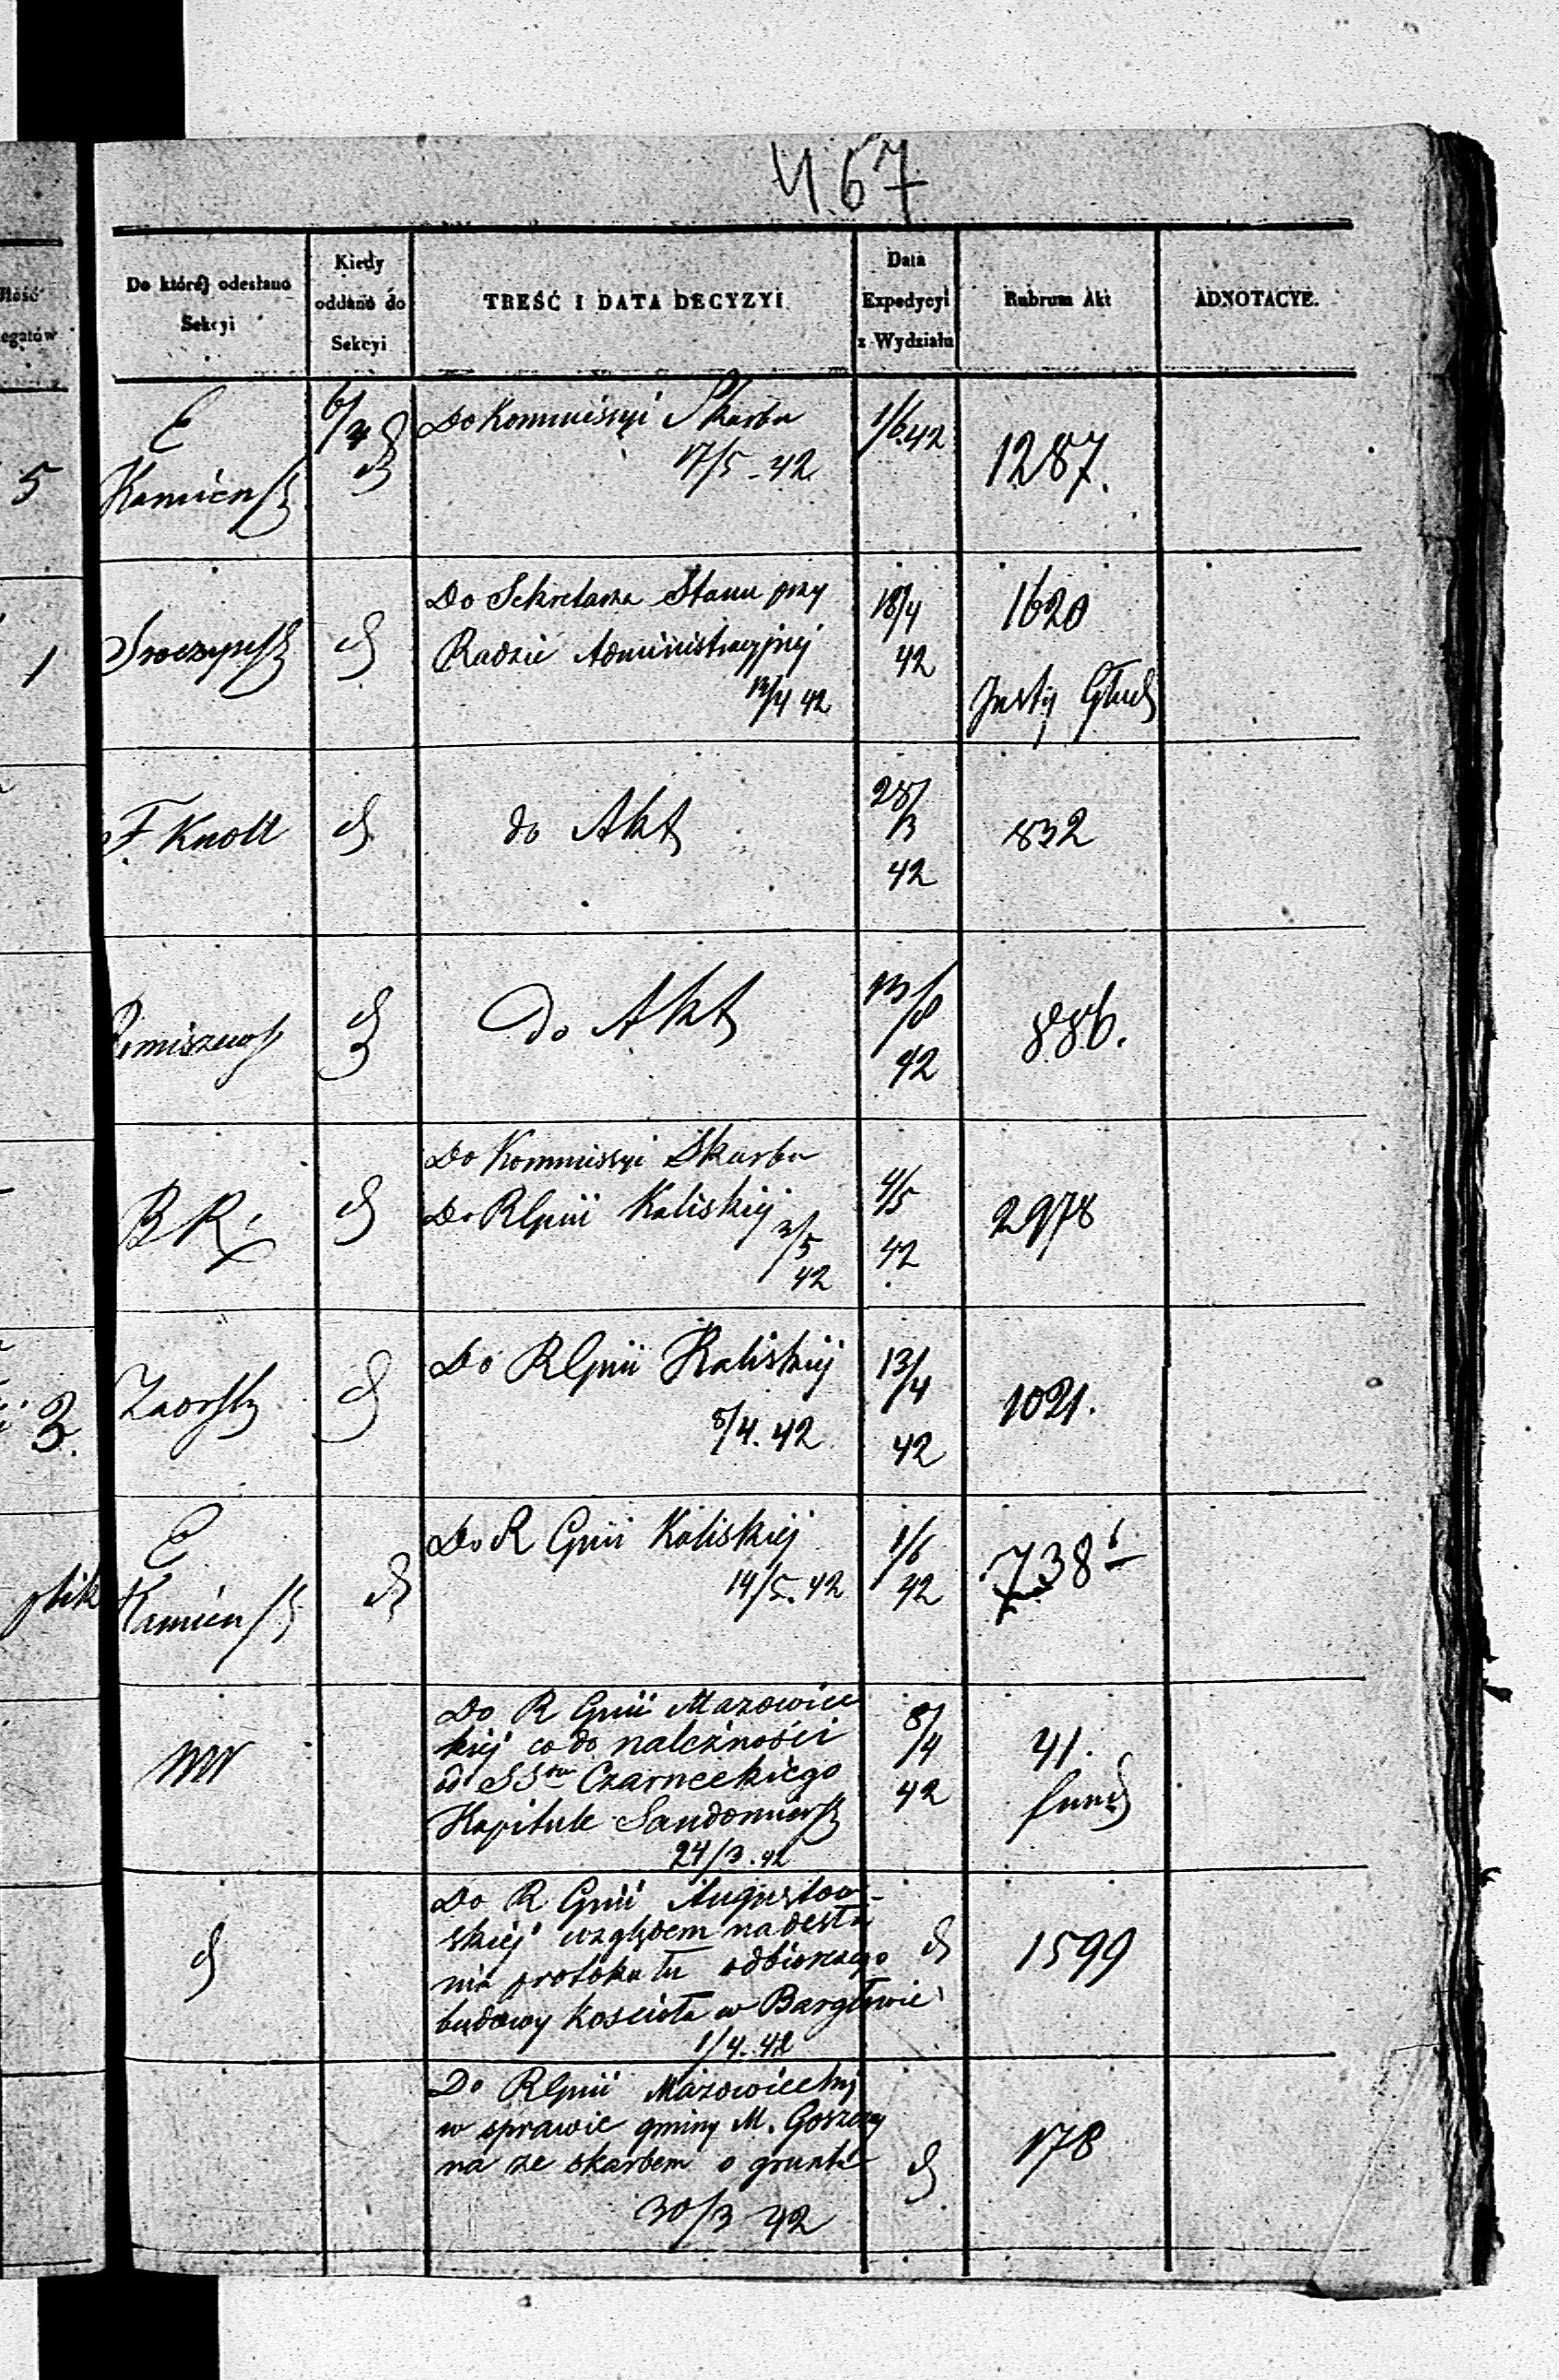 467
Ilość
egatów
Do któréj odesłano
Sekcyi
Kiedy
oddano do
Sekcyi
TREŚĆ I DATA DECYZYI
Data
Expedycyi
z Wydziału
Rubrum Akt
ADNOTACYE.
5
E
Kamieńsk
6/4
Do Kommissyi Skarbu
17/5 - 42
1/6.42
1287.
1
Sroczyńsk
d
Do Sekretarza Stanu przy
Radzie Administracyjnej
12/4 42
18/4
42
1620
F. Knoll
d
do Akt
28/3
42
832
d
Do Akt
42
886.
B R
d
Do Kommissyi Skarbu
Do RGnii Kaliskiej
2/5
42
4/5
42
2978
3.
Zaorsk
d
Do RGnii Kaliskiej
8/4. 42
13/4
42
1021.
plik
E
Kamieńsk
d
Do R Gnii Kaliskiej
14/5. 42
1/6
42
738
Do R Gnii Mazowiec
kiej co do należności
od SSrów Czarneckiego
Kapitule Sandomiersk
24/3. 42
8/4
42
41.
fund
d
Do R Gnii Augustow-
skiej względem nadesła
nia protokułu odbiorczego
budowy kościoła w Bargłowie
1/4. 42
d
1599
Do RGnii Mazowieckiej
w sprawie gminy M. Goszczy
na ze skarbem o grunta
30/3 42
d
178